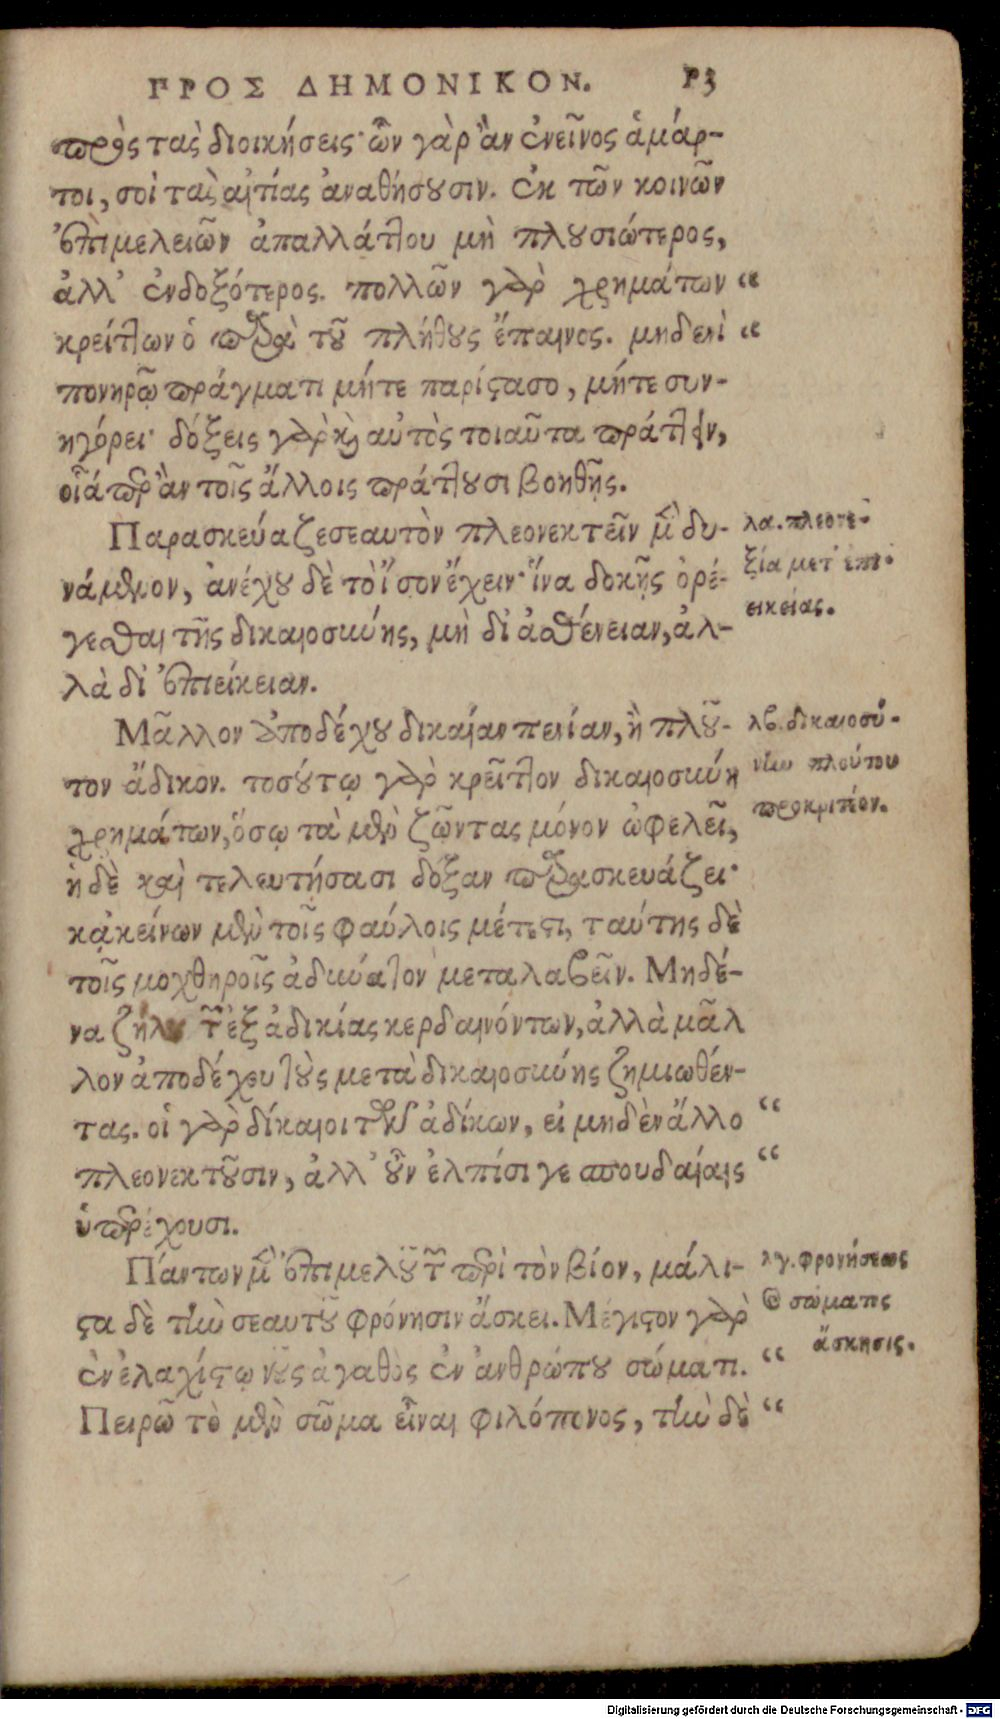 ΠΡΟΣ ΔΗΜΟΝΙΚΟΝ. ρζ
πρὸς τὰς διοικήσεις· ὧν γὰρ ἂν ἐκεῖνος ἁμάρ-
τοι, σοὶ τὰς αἰτίας ἀναθήσουσιν. Ἐκ τῶν κοινῶν
ἐπιμελειῶν ἀπαλλάττου μὴ πλουσιώτερος,
ἀλλ' ἐνδοξότερος. πολλῶν γὰρ χρημάτων “
κρείττων ὁ παρὰ τοῦ πλήθους ἔπαινος. μηδενὶ “
πονηρῷ πράγματι μήτε παρίστασο, μήτε συν-
ηγόρει· δόξεις γὰρ καὶ αὐτὸς τοιαῦτα πράττειν,
οἷά περ ἂν τοῖς ἄλλοις πράττουσι βοηθῇς.
Παρασκεύαζε σεαυτὸν πλεονεκτεῖν μὲν δυ-
νάμενον, ἀνέχου δὲ τὸ ἴσον ἔχειν· ἵνα δοκῇς ὀρέ-
γεσθαι τῆς δικαιοσύνης, μὴ δι' ἀσθένειαν, ἀλ-
λὰ δι' ἐπιείκειαν.
λα. πλεονε-
ξία μετ' ἐπι-
εικείας.
Μᾶλλον ἀποδέχου δικαίαν πενίαν, ἢ πλοῦ-
τον ἄδικον. τοσούτῳ γὰρ κρεῖττον δικαιοσύνη
χρημάτων, ὅσῳ τὰ μὲν ζῶντας μόνον ὠφελεῖ,
ἡ δὲ καὶ τελευτήσασι δόξαν παρασκευάζει·
κἀκείνων μὲν τοῖς φαύλοις μέτεστι, ταύτης δὲ
τοῖς μοχθηροῖς ἀδύνατον μεταλαβεῖν. Μηδέ-
να ζήλου τῶν ἐξ ἀδικίας κερδαινόντων, ἀλλὰ μᾶλ
λον ἀποδέχου τοὺς μετὰ δικαιοσύνης ζημιωθέν-
τας. οἱ γὰρ δίκαιοι τῶν ἀδίκων, εἰ μηδὲν ἄλλο “
πλεονεκτοῦσιν, ἀλλ' οὖν ἐλπίσι γε σπουδαίαις “
ὑπερέχουσι.
λβ. δικαιοσύ-
νην πλούτου
προκριτέον.
Πάντων μὲν ἐπιμελοῦ τῶν περὶ τὸν βίον, μάλι-
στα δὲ τὴν σεαυτοῦ φρόνησιν ἄσκει. Μέγιστον γὰρ
ἐν ἐλαχίστῳ νοῦς ἀγαθὸς ἐν ἀνθρώπου σώματι. “
Πειρῶ τὸ μὲν σῶμα εἶναι φιλόπονος, τὴν δὲ “
λγ. φρονήσεως
καὶ σώματος
ἄσκησις.
Digitalisierung gefördert durch die Deutsche Forschungsgemeinschaft - DFG